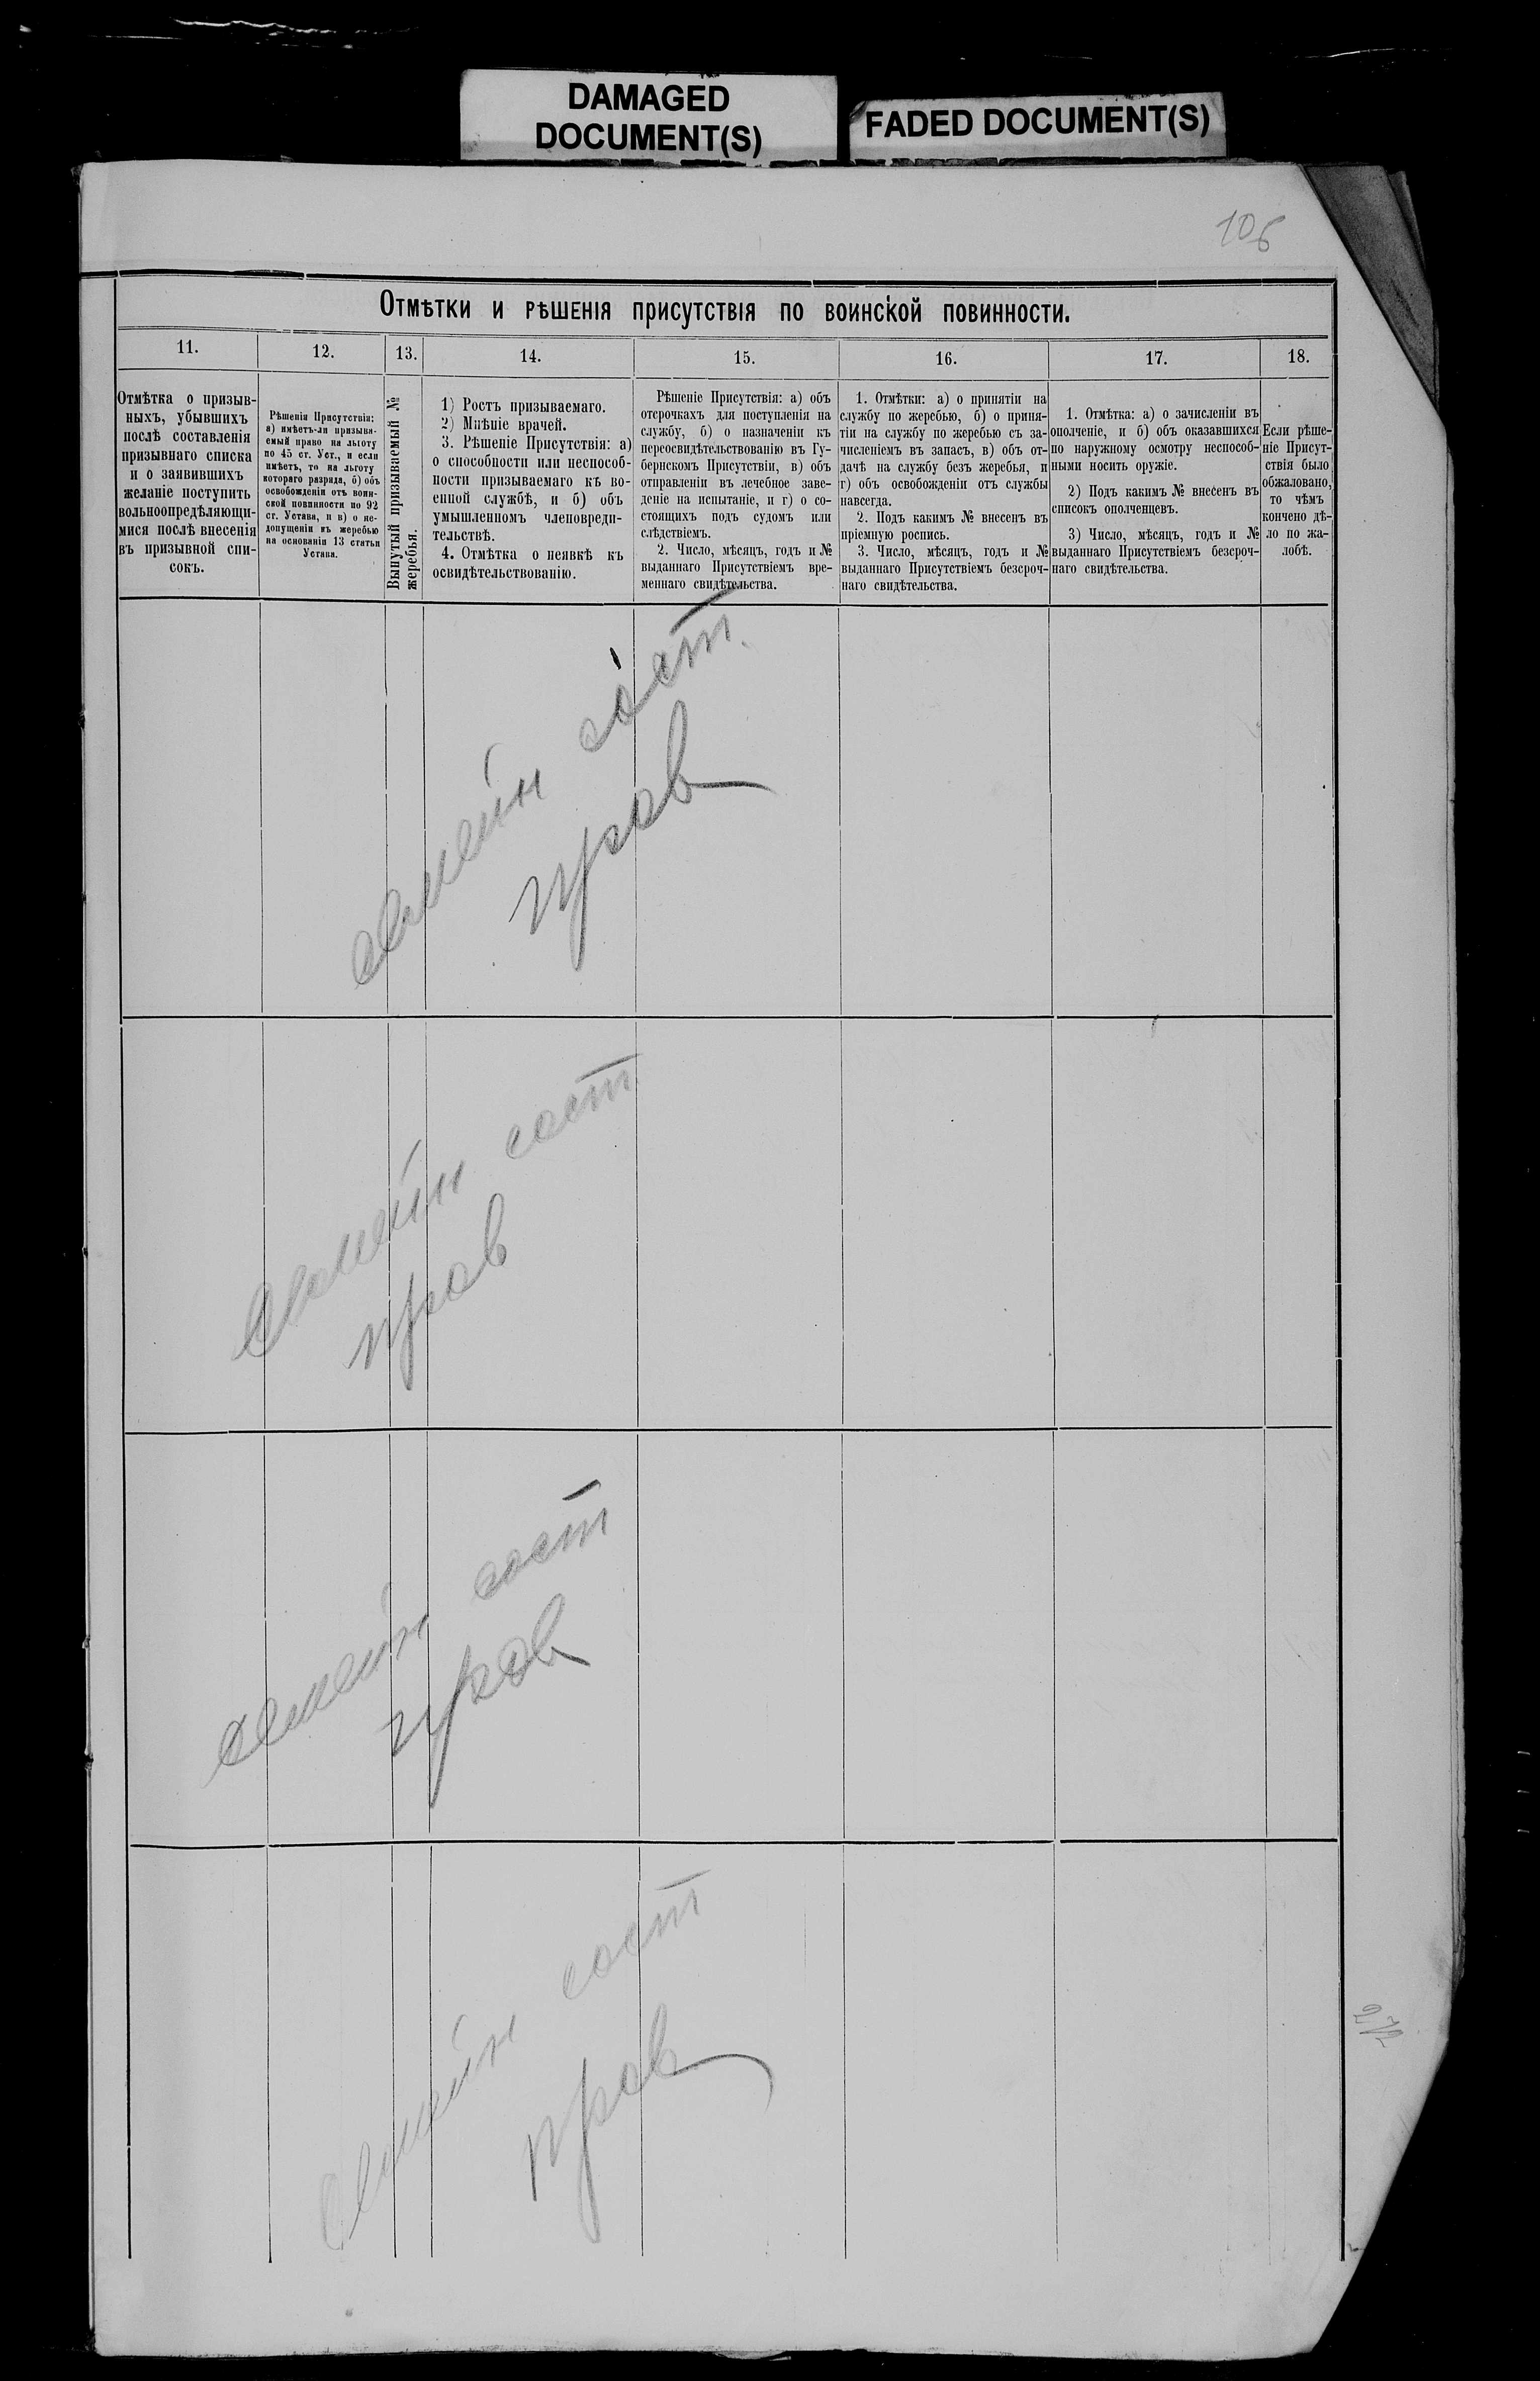 DAMAGED
DOCUMENT(S)
FADED DOCUMENT(S)
106
Отмѣтки и рѣшенія присутствія по воинской повинности.
11.
12.
13.
14.
15.
16.
17.
18.
Отмѣтка о призыв-
ныхъ, убывшихъ
послѣ составленія
призывнаго списка
и о заявившихъ
желаніе поступить
вольноопредѣляющи-
мися послѣ внесенія
въ призывной спи-
сокъ.
Рѣшенія Присутствія:
а) имѣетъ-ли призыва-
емый право на льготу
по 45 ст. Уст., и если
имѣетъ, то на льготу
котораго разряда, б) объ
освобожденіи отъ воин-
ской повинности по 92
ст. Устава, и в) о не-
допущеніи къ жеребью
на основаніи 13 статьи
Устава.
Вынутый призываемый №
жеребья.
1) Ростъ призываемаго.
2) Мнѣніе врачей.
3. Рѣшеніе Присутствія: а)
о способности или неспособ-
ности призываемаго къ во-
енной службѣ, и б) объ
умышленномъ членовреди-
тельствѣ.
4. Отмѣтка о неявкѣ къ
освидѣтельствованію.
Рѣшеніе Присутствія: а) объ
отсрочкахъ для поступленія на
службу, б) о назначеніи къ
переосвидѣтельствованію въ Гу-
бернскомъ Присутствіи, в) объ
отправленіи въ лечебное заве-
деніе на испытаніе, и г) о со-
стоящихъ подъ судомъ или
слѣдствіемъ.
2. Число, мѣсяцъ, годъ и №
выданнаго Присутствіемъ вре-
меннаго свидѣтельства.
1. Отмѣтки: а) о принятіи на
службу по жеребью, б) о приня-
тіи на службу по жеребью съ за-
численіемъ въ запасъ, в) объ от-
дачѣ на службу безъ жеребья, и
г) объ освобожденіи отъ службы
навсегда.
2. Подъ какимъ № внесенъ въ
пріемную роспись.
3. Число, мѣсяцъ, годъ и №
выданнаго Присутствіемъ безсроч-
наго свидѣтельства.
1. Отмѣтка: а) о зачисленіи въ
ополченіе, и б) объ оказавшихся
по наружному осмотру неспособ-
ными носить оружіе.
2) Подъ какимъ № внесенъ въ
списокъ ополченцевъ.
3) Число, мѣсяцъ, годъ и №
выданнаго Присутствіемъ безсроч-
наго свидѣтельства.
Если рѣше-
ніе Присут-
ствія было
обжаловано,
то чѣмъ
кончено дѣ-
ло по жа-
лобѣ.
семейн сост.
пров
семейн сост
пров
семейн сост
пров
семейн сост
пров
272